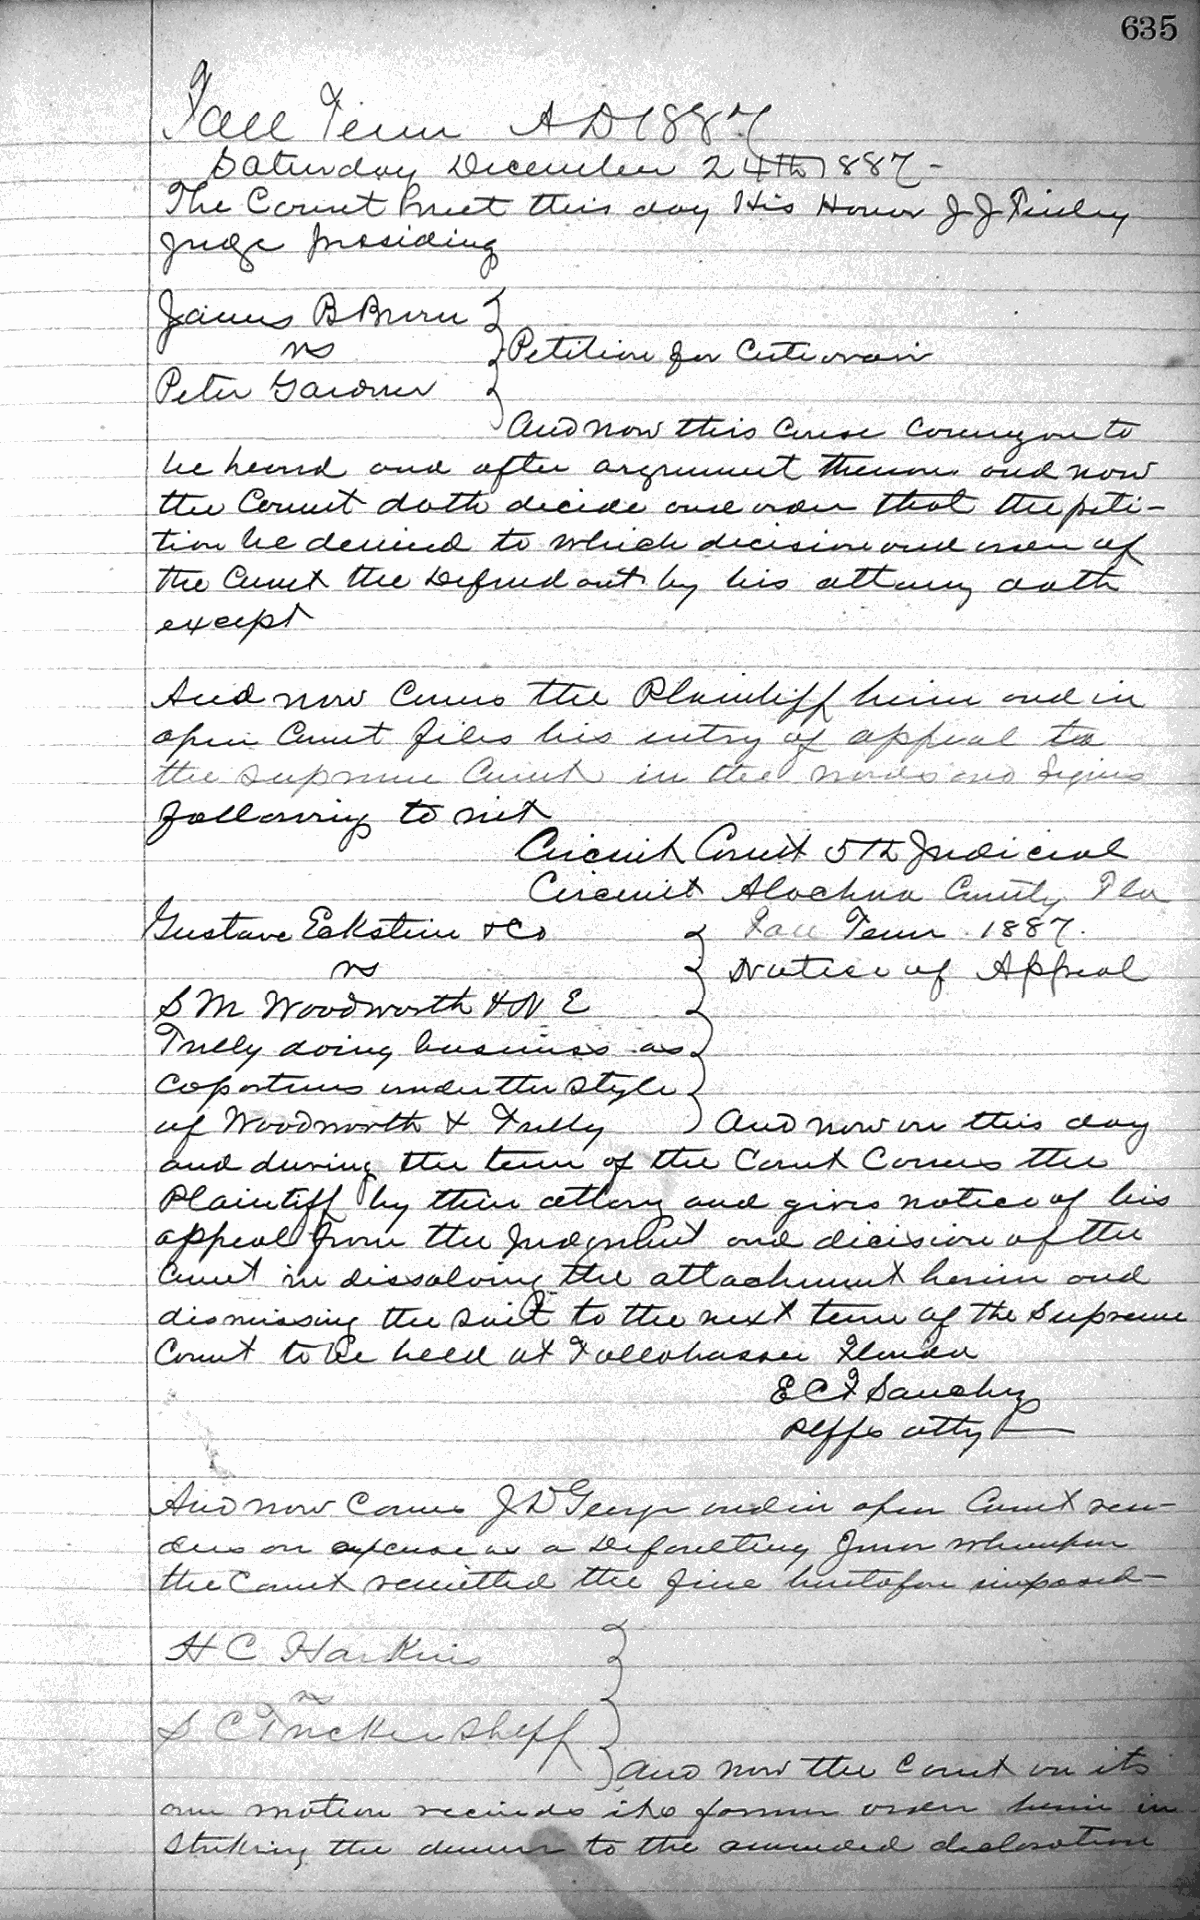 635
Fall Term AD 1887
Saturday December 24th 1887 -
The Court met this day His Honor J J Finley
Judge presiding
James B Brown
vs
Petition for Certiorari
Peter Gardner
And now this cause coming on to
be heard and after argument thereon and now
the Court doth decide and order that the peti-
tion be denied to which decision and order of
the Court the Defendant by his attorney doth
except
And now comes the Plaintiff herein and in
open Court files his entry of appeal to
the Supreme Court in the words and figures
following to wit
Circuit Court 5th Judicial
Circuit Alachua County Fla
Gustave Eckstein & Co
Fall Term 1887.
vs
Notice of Appeal
S M Woodworth & N E
Tully doing business as
Copartners under the style
of Woodworth & Tully
And now on this day
and during the term of the Court Comes the
Plaintiff by their attory and gives notice of his
appeal from the Judgment and decision of the
Court in dissolving the attachment herein and
dismissing the suit to the next term of the Supreme
Court to be held at Tallahassee Florida
E C F Sanchez
Plffs atty
And now Comes J D George and in open Court ren-
ders an excuse as a Defaulting Juror whereupon
the Court remitted the fine heretofore imposed -
H C Harkins
vs
S C Tucker Sheff
And now the Court on its
own motion recinds its former order herein in
striking the demurr to the amended declaration